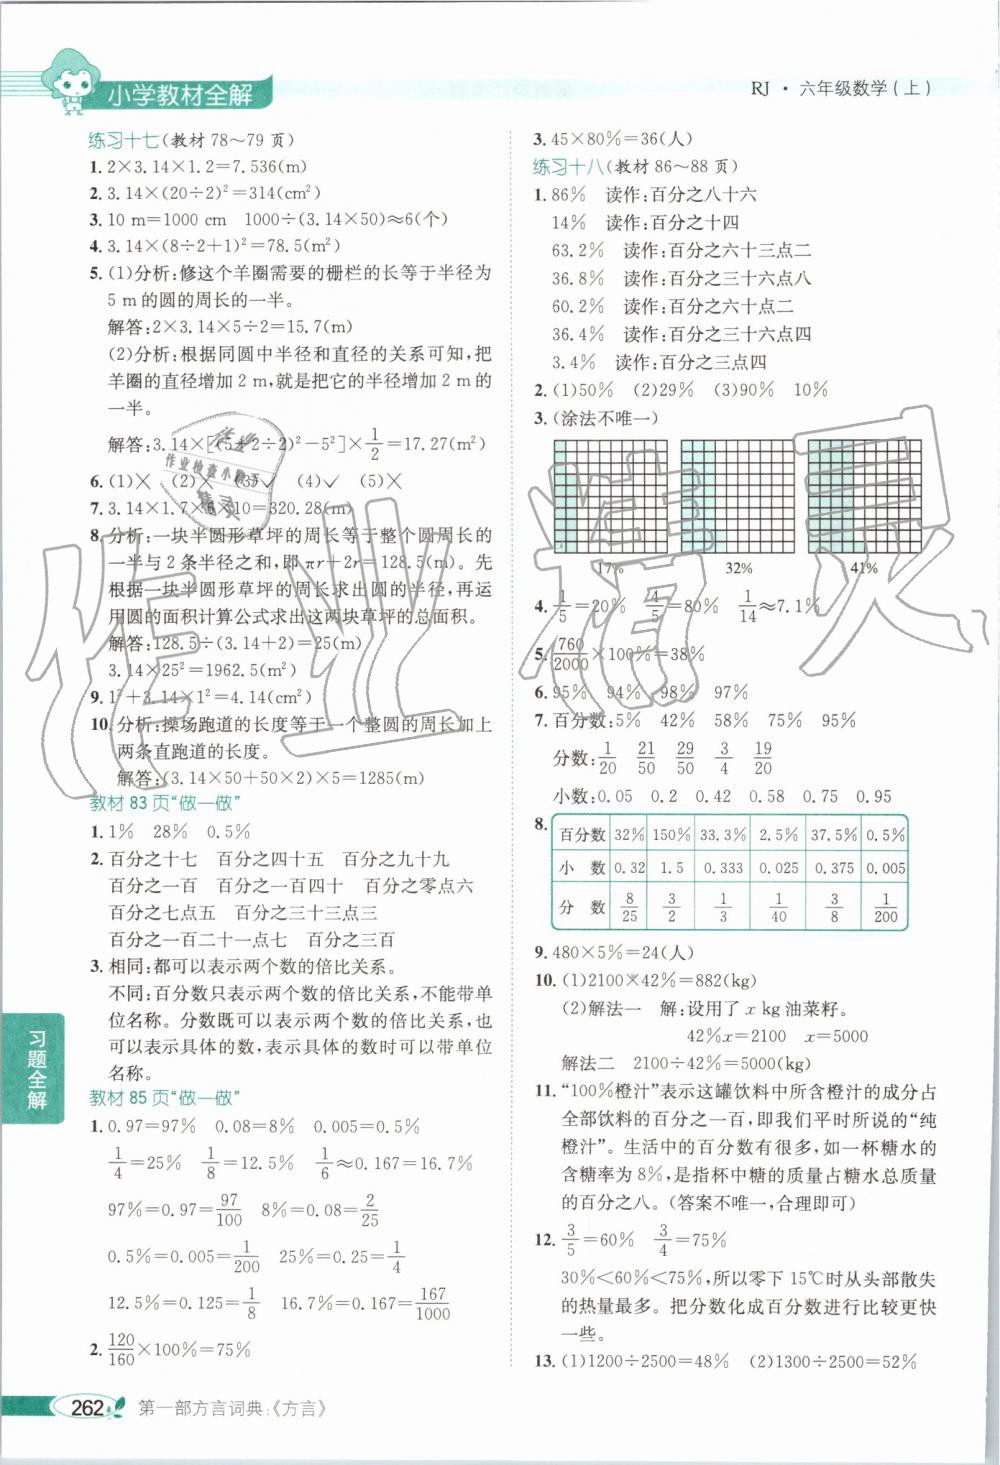 小学教材全解
RJ · 六年级数学(上)
练习十七(教材 78~79 页)
1. 2×3.14×1.2=7.536(m)
2. 3.14×(20÷2)²=314(cm²)
3. 10 m=1000 cm 1000÷(3.14×50)≈6(个)
4. 3.14×(8÷2+1)²=78.5(m²)
5. (1)分析:修这个羊圈需要的栅栏的长等于半径为
5 m 的圆的周长的一半。
解答:2×3.14×5÷2=15.7(m)
(2)分析:根据同圆中半径和直径的关系可知,把
羊圈的直径增加 2 m,就是把它的半径增加 2 m 的
一半。
解答:3.14×[(5+2÷2)²-5²]×1/2=17.27(m²)
6. (1)× (2)× (3)√ (4)√ (5)×
7. 3.14×1.7×6×10=320.28(m)
8. 分析:一块半圆形草坪的周长等于整个圆周长的
一半与 2 条半径之和,即 πr+2r=128.5(m)。先
根据一块半圆形草坪的周长求出圆的半径,再运
用圆的面积计算公式求出这两块草坪的总面积。
解答:128.5÷(3.14+2)=25(m)
3.14×25²=1962.5(m²)
9. 1²+3.14×1²=4.14(cm²)
10. 分析:操场跑道的长度等于一个整圆的周长加上
两条直跑道的长度。
解答:(3.14×50+50×2)×5=1285(m)
教材 83 页“做一做”
1. 1% 28% 0.5%
2. 百分之十七 百分之四十五 百分之九十九
百分之一百 百分之一百四十 百分之零点六
百分之七点五 百分之三十三点三
百分之一百二十一点七 百分之三百
3. 相同:都可以表示两个数的倍比关系。
不同:百分数只表示两个数的倍比关系,不能带单
位名称。分数既可以表示两个数的倍比关系,也
可以表示具体的数,表示具体的数时可以带单位
名称。
教材 85 页“做一做”
1. 0.97=97% 0.08=8% 0.005=0.5%
1/4=25% 1/8=12.5% 1/6≈0.167=16.7%
97%=0.97=97/100 8%=0.08=2/25
0.5%=0.005=1/200 25%=0.25=1/4
12.5%=0.125=1/8 16.7%=0.167=167/1000
2. 120/160×100%=75%
3. 45×80%=36(人)
练习十八(教材 86~88 页)
1. 86% 读作:百分之八十六
14% 读作:百分之十四
63.2% 读作:百分之六十三点二
36.8% 读作:百分之三十六点八
60.2% 读作:百分之六十点二
36.4% 读作:百分之三十六点四
3.4% 读作:百分之三点四
2. (1)50% (2)29% (3)90% 10%
3. (涂法不唯一)
17% 32% 41%
4. 1/5=20% 4/5=80% 1/14≈7.1%
5. 760/2000×100%=38%
6. 95% 94% 98% 97%
7. 百分数:5% 42% 58% 75% 95%
分数:1/20 21/50 29/50 3/4 19/20
小数:0.05 0.2 0.42 0.58 0.75 0.95
8. 百分数 32% 150% 33.3% 2.5% 37.5% 0.5%
小 数 0.32 1.5 0.333 0.025 0.375 0.005
分 数 8/25 3/2 1/3 1/40 3/8 1/200
9. 480×5%=24(人)
10. (1)2100×42%=882(kg)
(2)解法一 解:设用了 x kg 油菜籽。
42%x=2100 x=5000
解法二 2100÷42%=5000(kg)
11. “100%橙汁”表示这罐饮料中所含橙汁的成分占
全部饮料的百分之一百,即我们平时所说的“纯
橙汁”。生活中的百分数有很多,如一杯糖水的
含糖率为 8%,是指杯中糖的质量占糖水总质量
的百分之八。(答案不唯一,合理即可)
12. 3/5=60% 3/4=75%
30%<60%<75%,所以零下 15℃时从头部散失
的热量最多。把分数化成百分数进行比较更快
一些。
13. (1)1200÷2500=48% (2)1300÷2500=52%
习题全解
262 第一部方言词典:《方言》
作业精灵